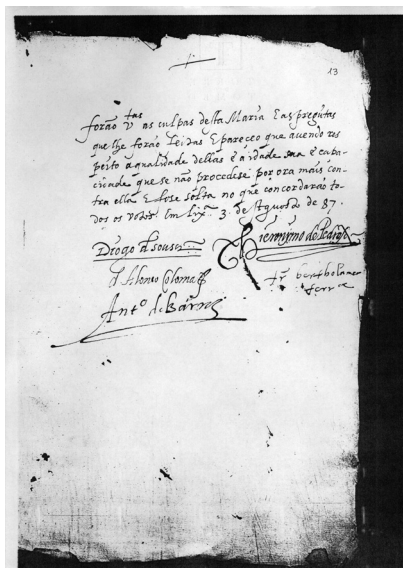 13
forão vtas as culpas desta Maria E as pregũtas
que lhe forão leidas E pareceo que auendo res
peito a qualidade dellas e a idade sua e capa-
cidade que se não procedese por ora mais con
tra ella E fose solta no que concordarão to-
dos os votos. Em Lixa 3. de Agosto de 87.
Diogo d sousa
Hieronimo de Pedrosa
d Alonso Coloma
Anto. de Barros
bertholameu
ferr